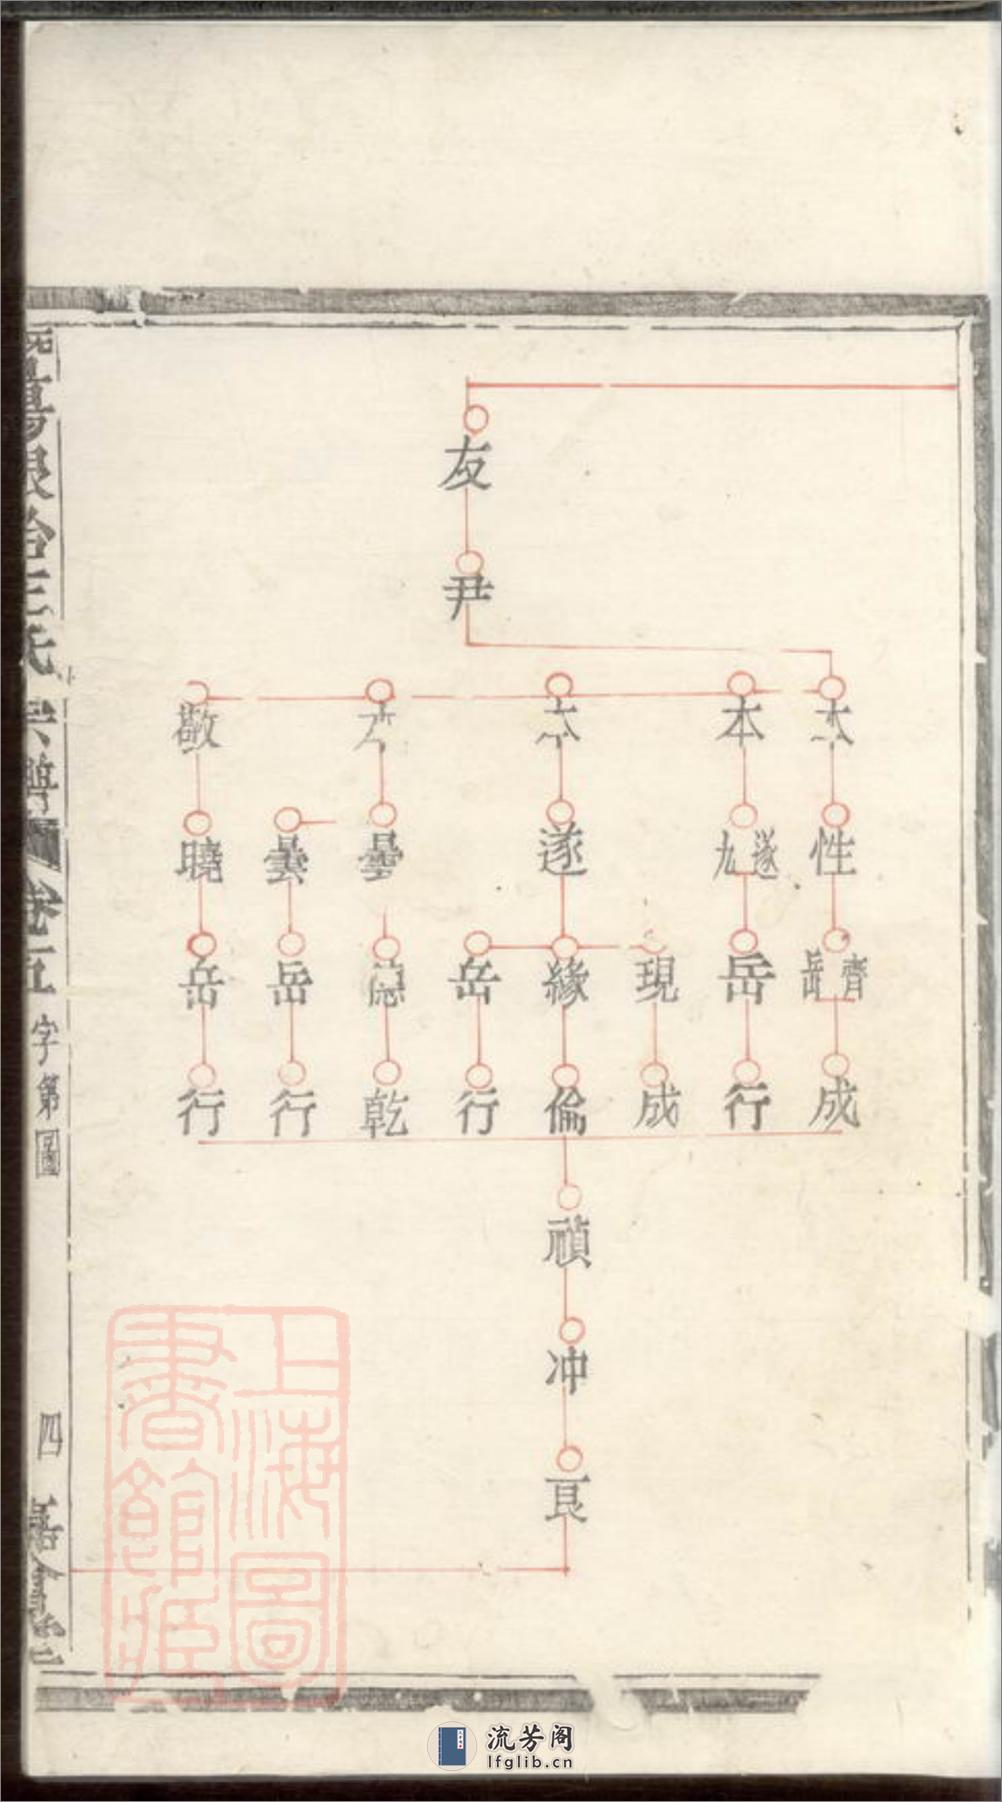 友
尹
本
敬
性
遂 九
遂
曇
曇
曉
齊 岳
岳
現
緣
岳
岳
岳
成
行
成
倫
行
乾
行
行
禎
冲
艮
宗譜
卷五
字第圖
四
上海圖
書館藏
流芳阁
lfglib.cn